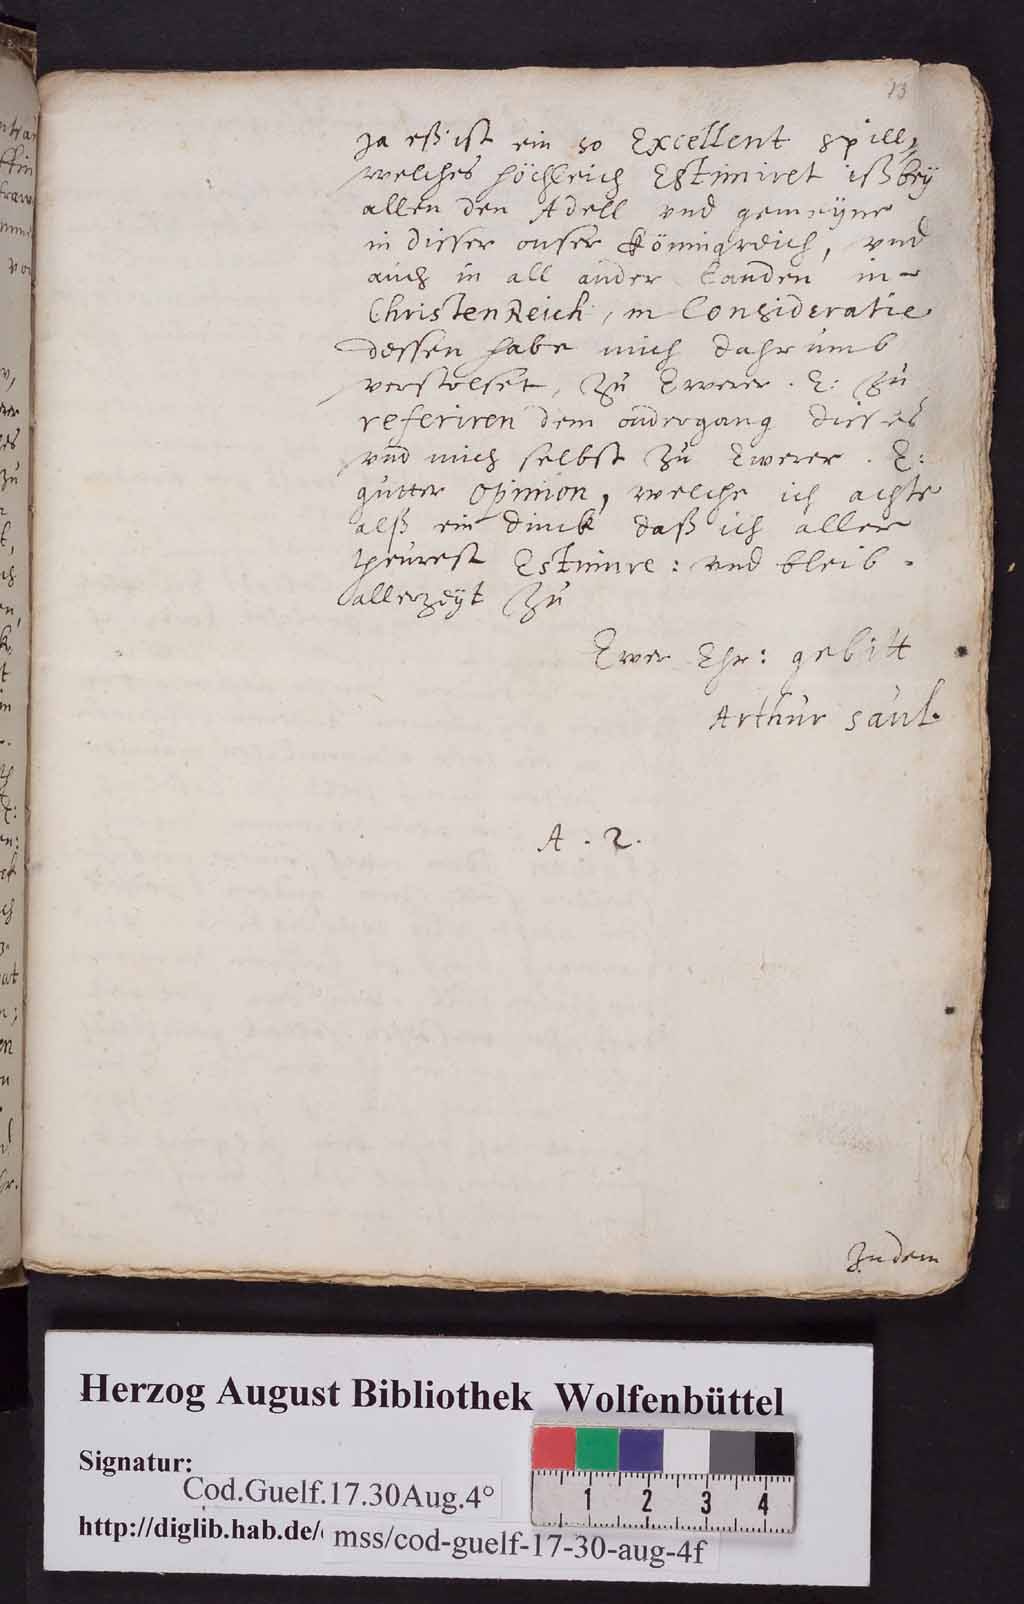 13
Ja eß ist ein so Excellent spill,
welches höchleich Estimiret iß bey
allen den Adell vnd gemeyne
in dieser onser Köningreich, vnd
auch in all ander Landen in
ChristenReich, in Consideratie
dessen habe mich dahrumb
verstolset, zu Ewerer. E: zu
referiren dem ondergang dieses
vnd mich selbst zu Ewerer. E:
gutter opinion, welche ich achte
alß ein dinck daß ich aller
theurest Estimire: vnd bleib
allerzeyt zu
Ewer Ehr: gebitt
Arthur Saul.
A. 2.
Zudem
Herzog August Bibliothek Wolfenbüttel
Signatur:
Cod.Guelf.17.30Aug.4°
http://diglib.hab.de/ mss/cod-guelf-17-30-aug-4f
1 2 3 4